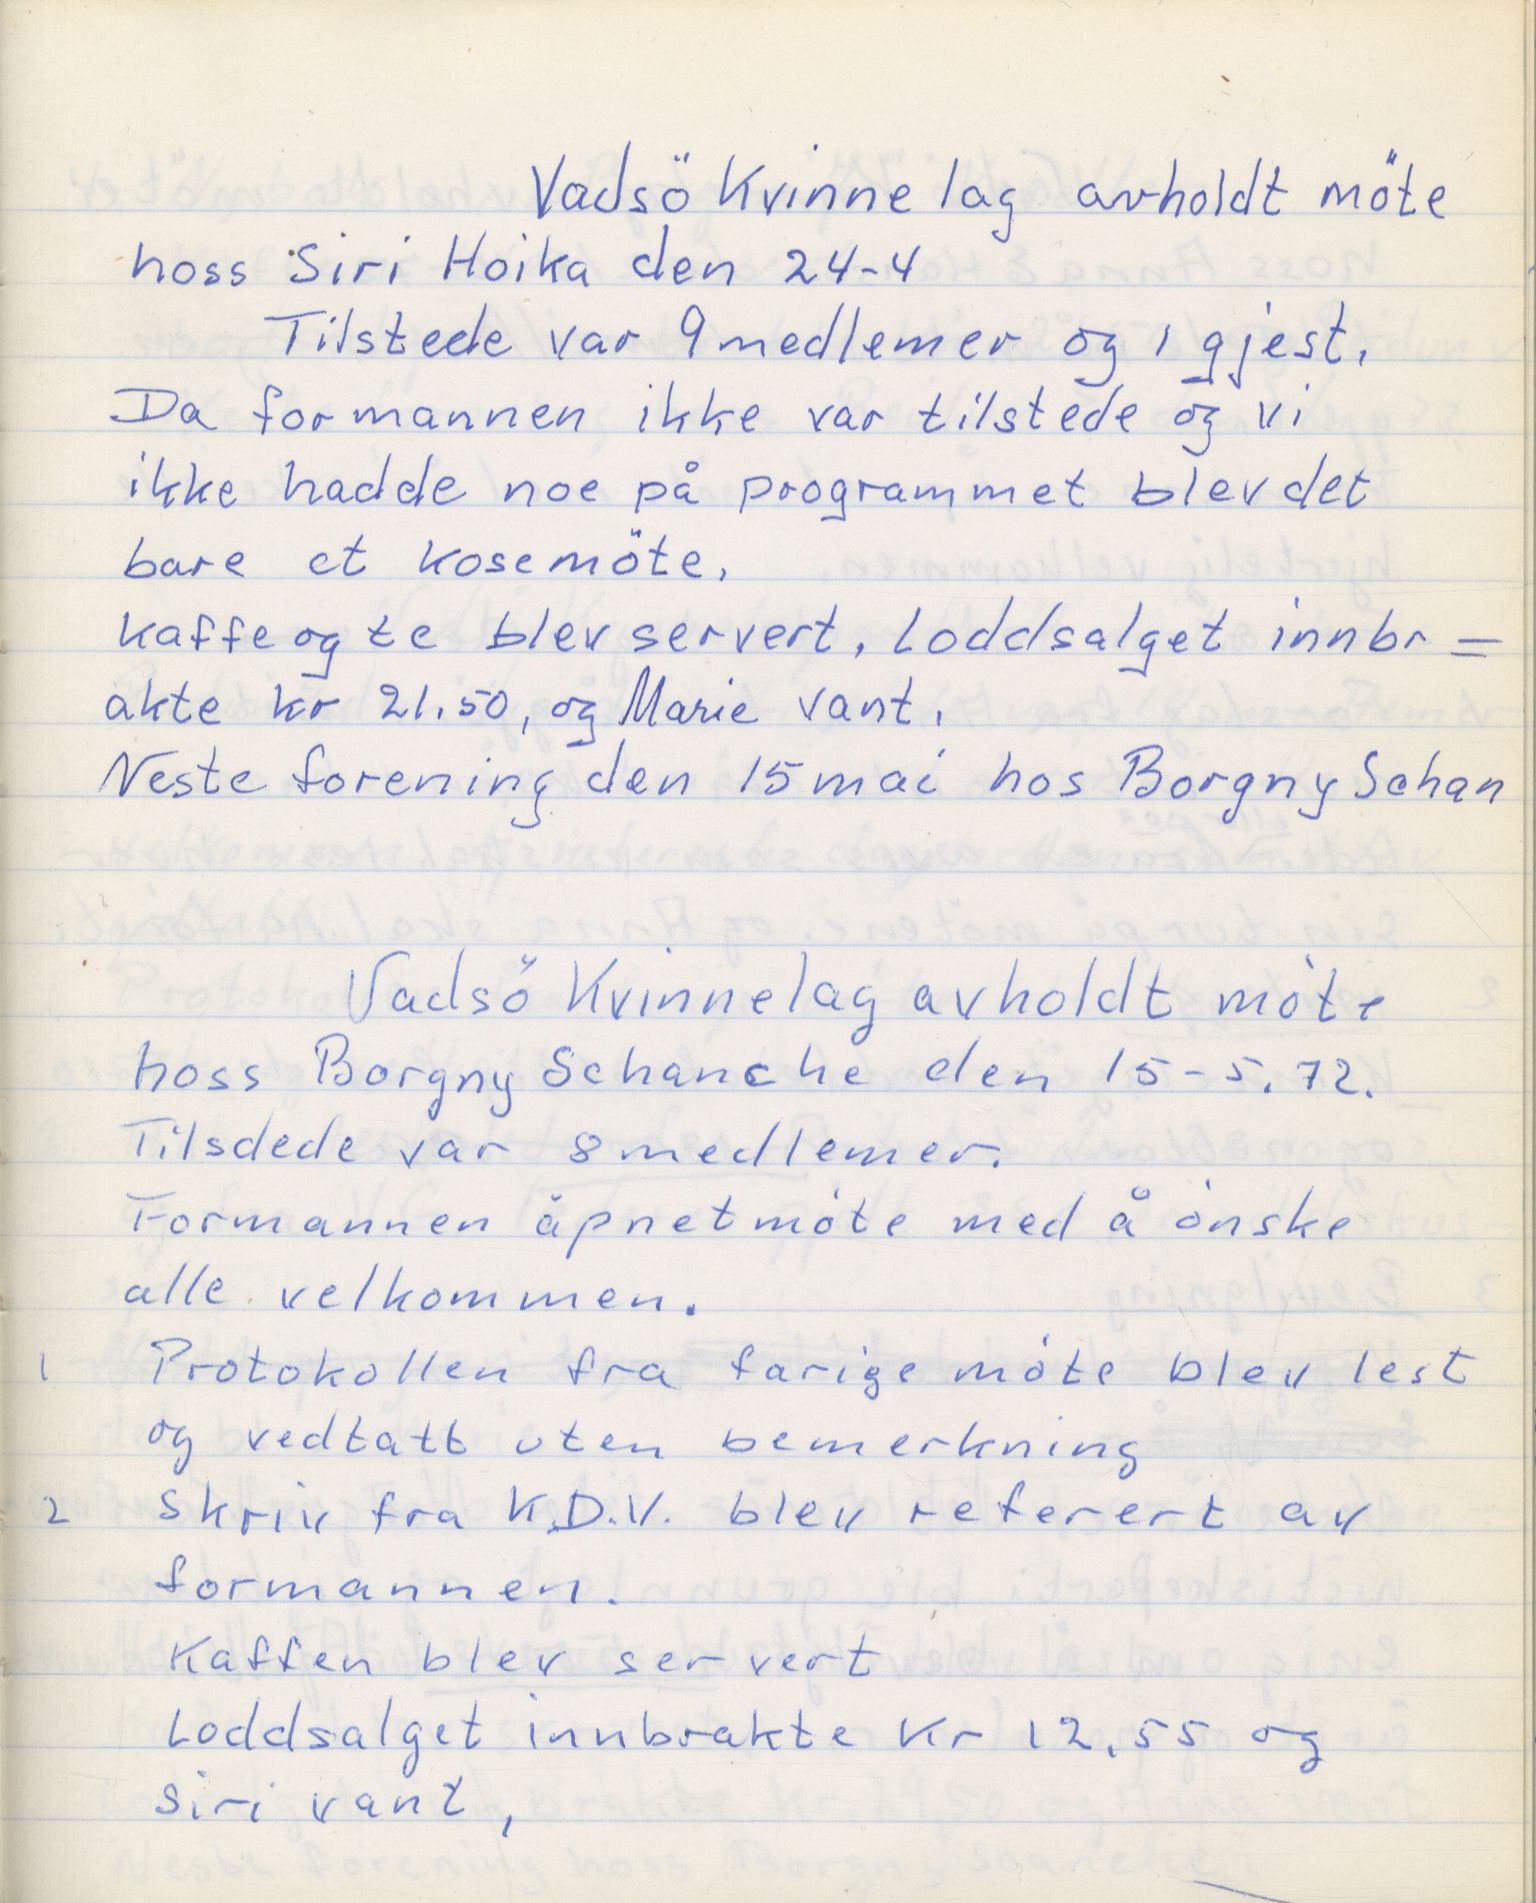 Vadsö Kvinnelag avholdt möte
hoss Siri Hoika den 24-4
Tilstede var 9 medlemer og 1 gjest.
Da formannen ikke var tilstede og vi
ikke hadde noe på programmet blev det
bare et kosemöte.
Kaffe og te blev servert. Loddsalget innbr=
akte kr 21.50, og Marie vant.
Neste forening den 15 mai hos Borgny Schan
Vadsö Kvinnelag avholdt möte
hoss Borgny Schanche den 15-5.72.
Tilsdede var 8 medlemer.
Formannen åpnet möte med å önske
alle velkommen.
1 Protokollen fra farige möte blev lest
og vedtatt uten bemerkning
2 Skriv fra K.D.V. blev referert av
formannen.
Kaffen blev servert
Loddsalget innbrakte Kr 12.55 og
Siri vant,